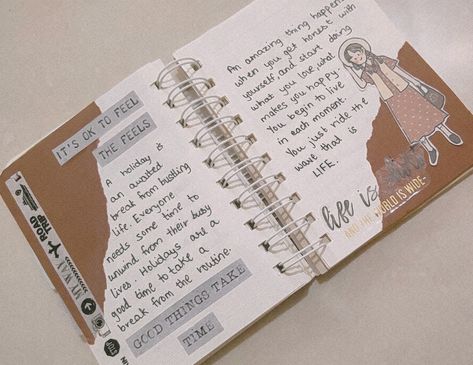 IT'S OK TO FEEL
THE FEELS
A holiday is
an awaited
break from bustling
life. Everyone
needs some time to
unwind from their busy
lives. Holidays are a
good time to take a
break from the routine.
GOOD THINGS TAKE
TIME
ROAD
TRIP
MY WAY
An amazing thing happens
when you get honest with
yourself and start doing
what you love, what
makes you happy.
You begin to live
in each moment.
You just ride the
wave that is
LIFE.
life is
AND THE WORLD IS WIDE